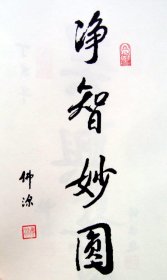 净智妙圆
佛源